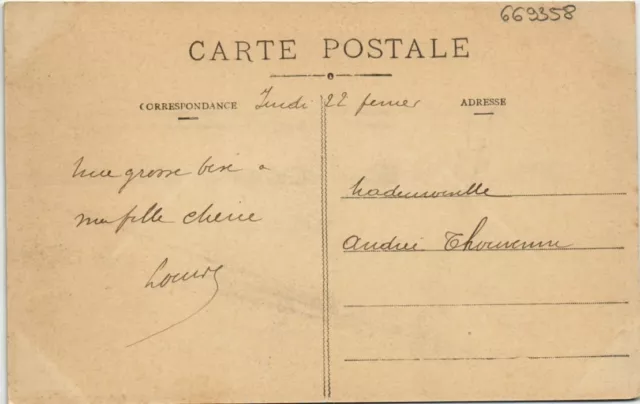 669358
CARTE POSTALE
CORRESPONDANCE
Jeudi 22 fevrier
ADRESSE
Une grosse bise a
ma fille cherie
Mademoiselle
Andrée